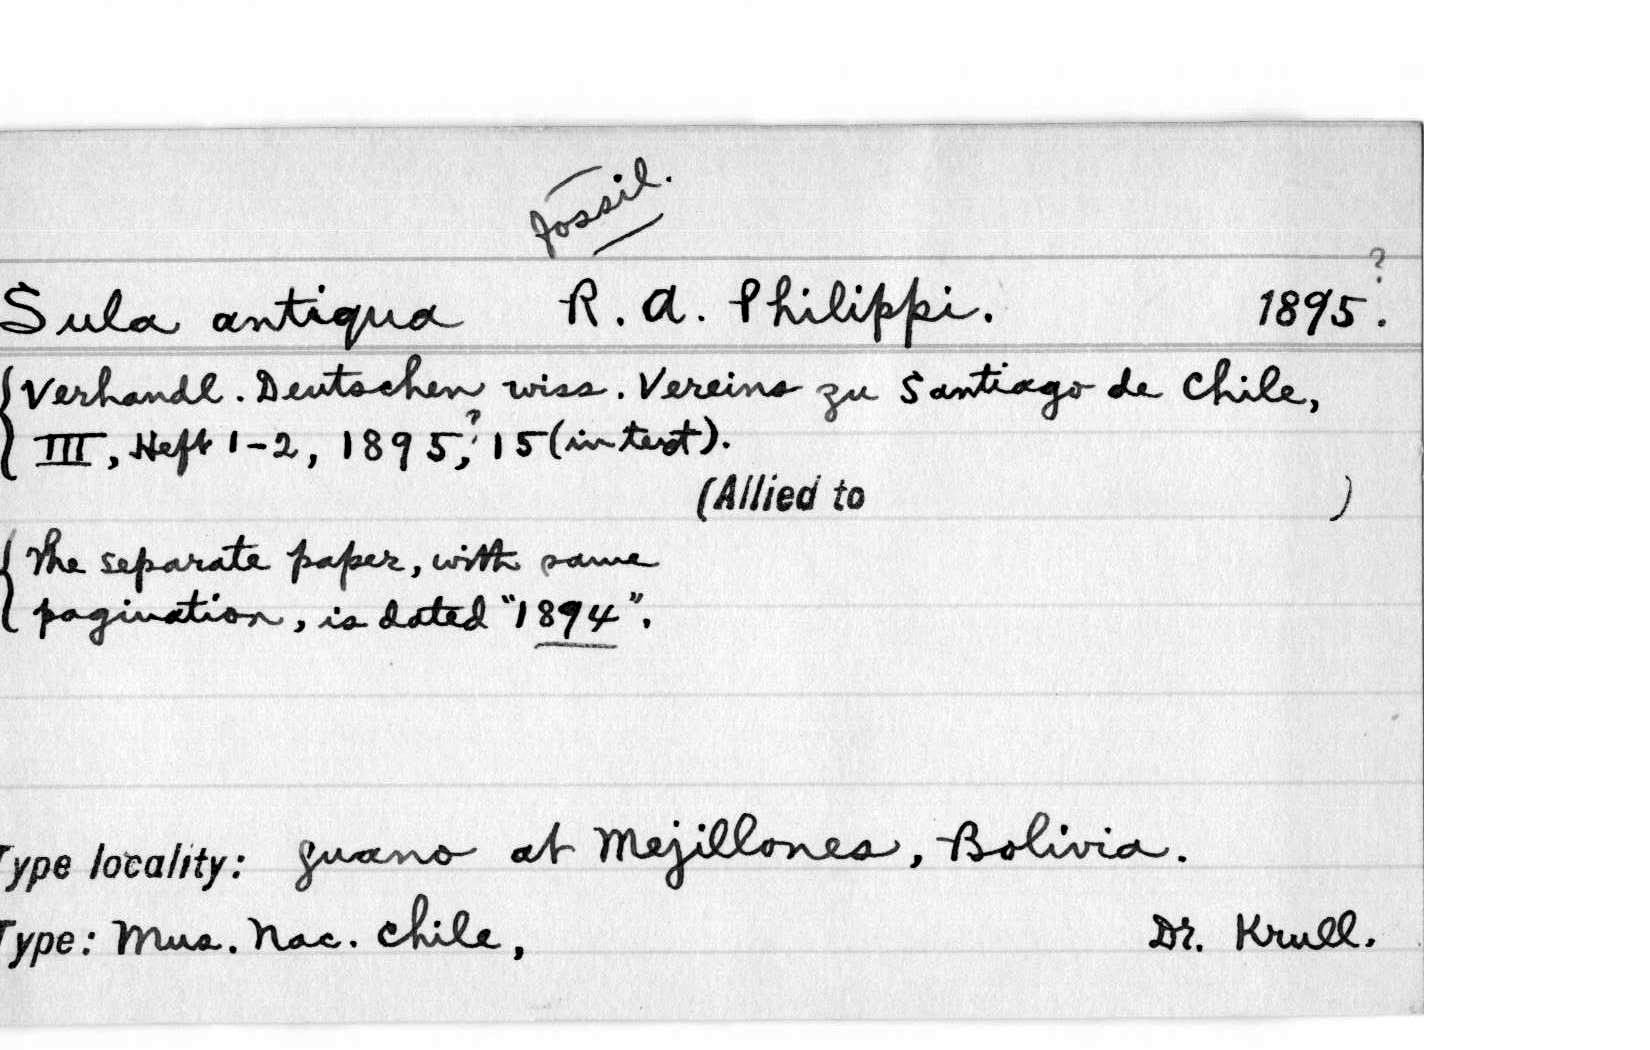 fossil.
Sula antiqua R. A. Philippi. 1895?.
{Verhandl. Deutschen wiss. Vereins zu Santiago de Chile,
III, Heft 1-2, 1895,? 15 (in text).
(Allied to )
{The separate paper, with same
pagination, is dated "1894".
Type locality: guano at Mejillones, Bolivia.
Type: Mus. Nac. Chile, Dr. Krull.